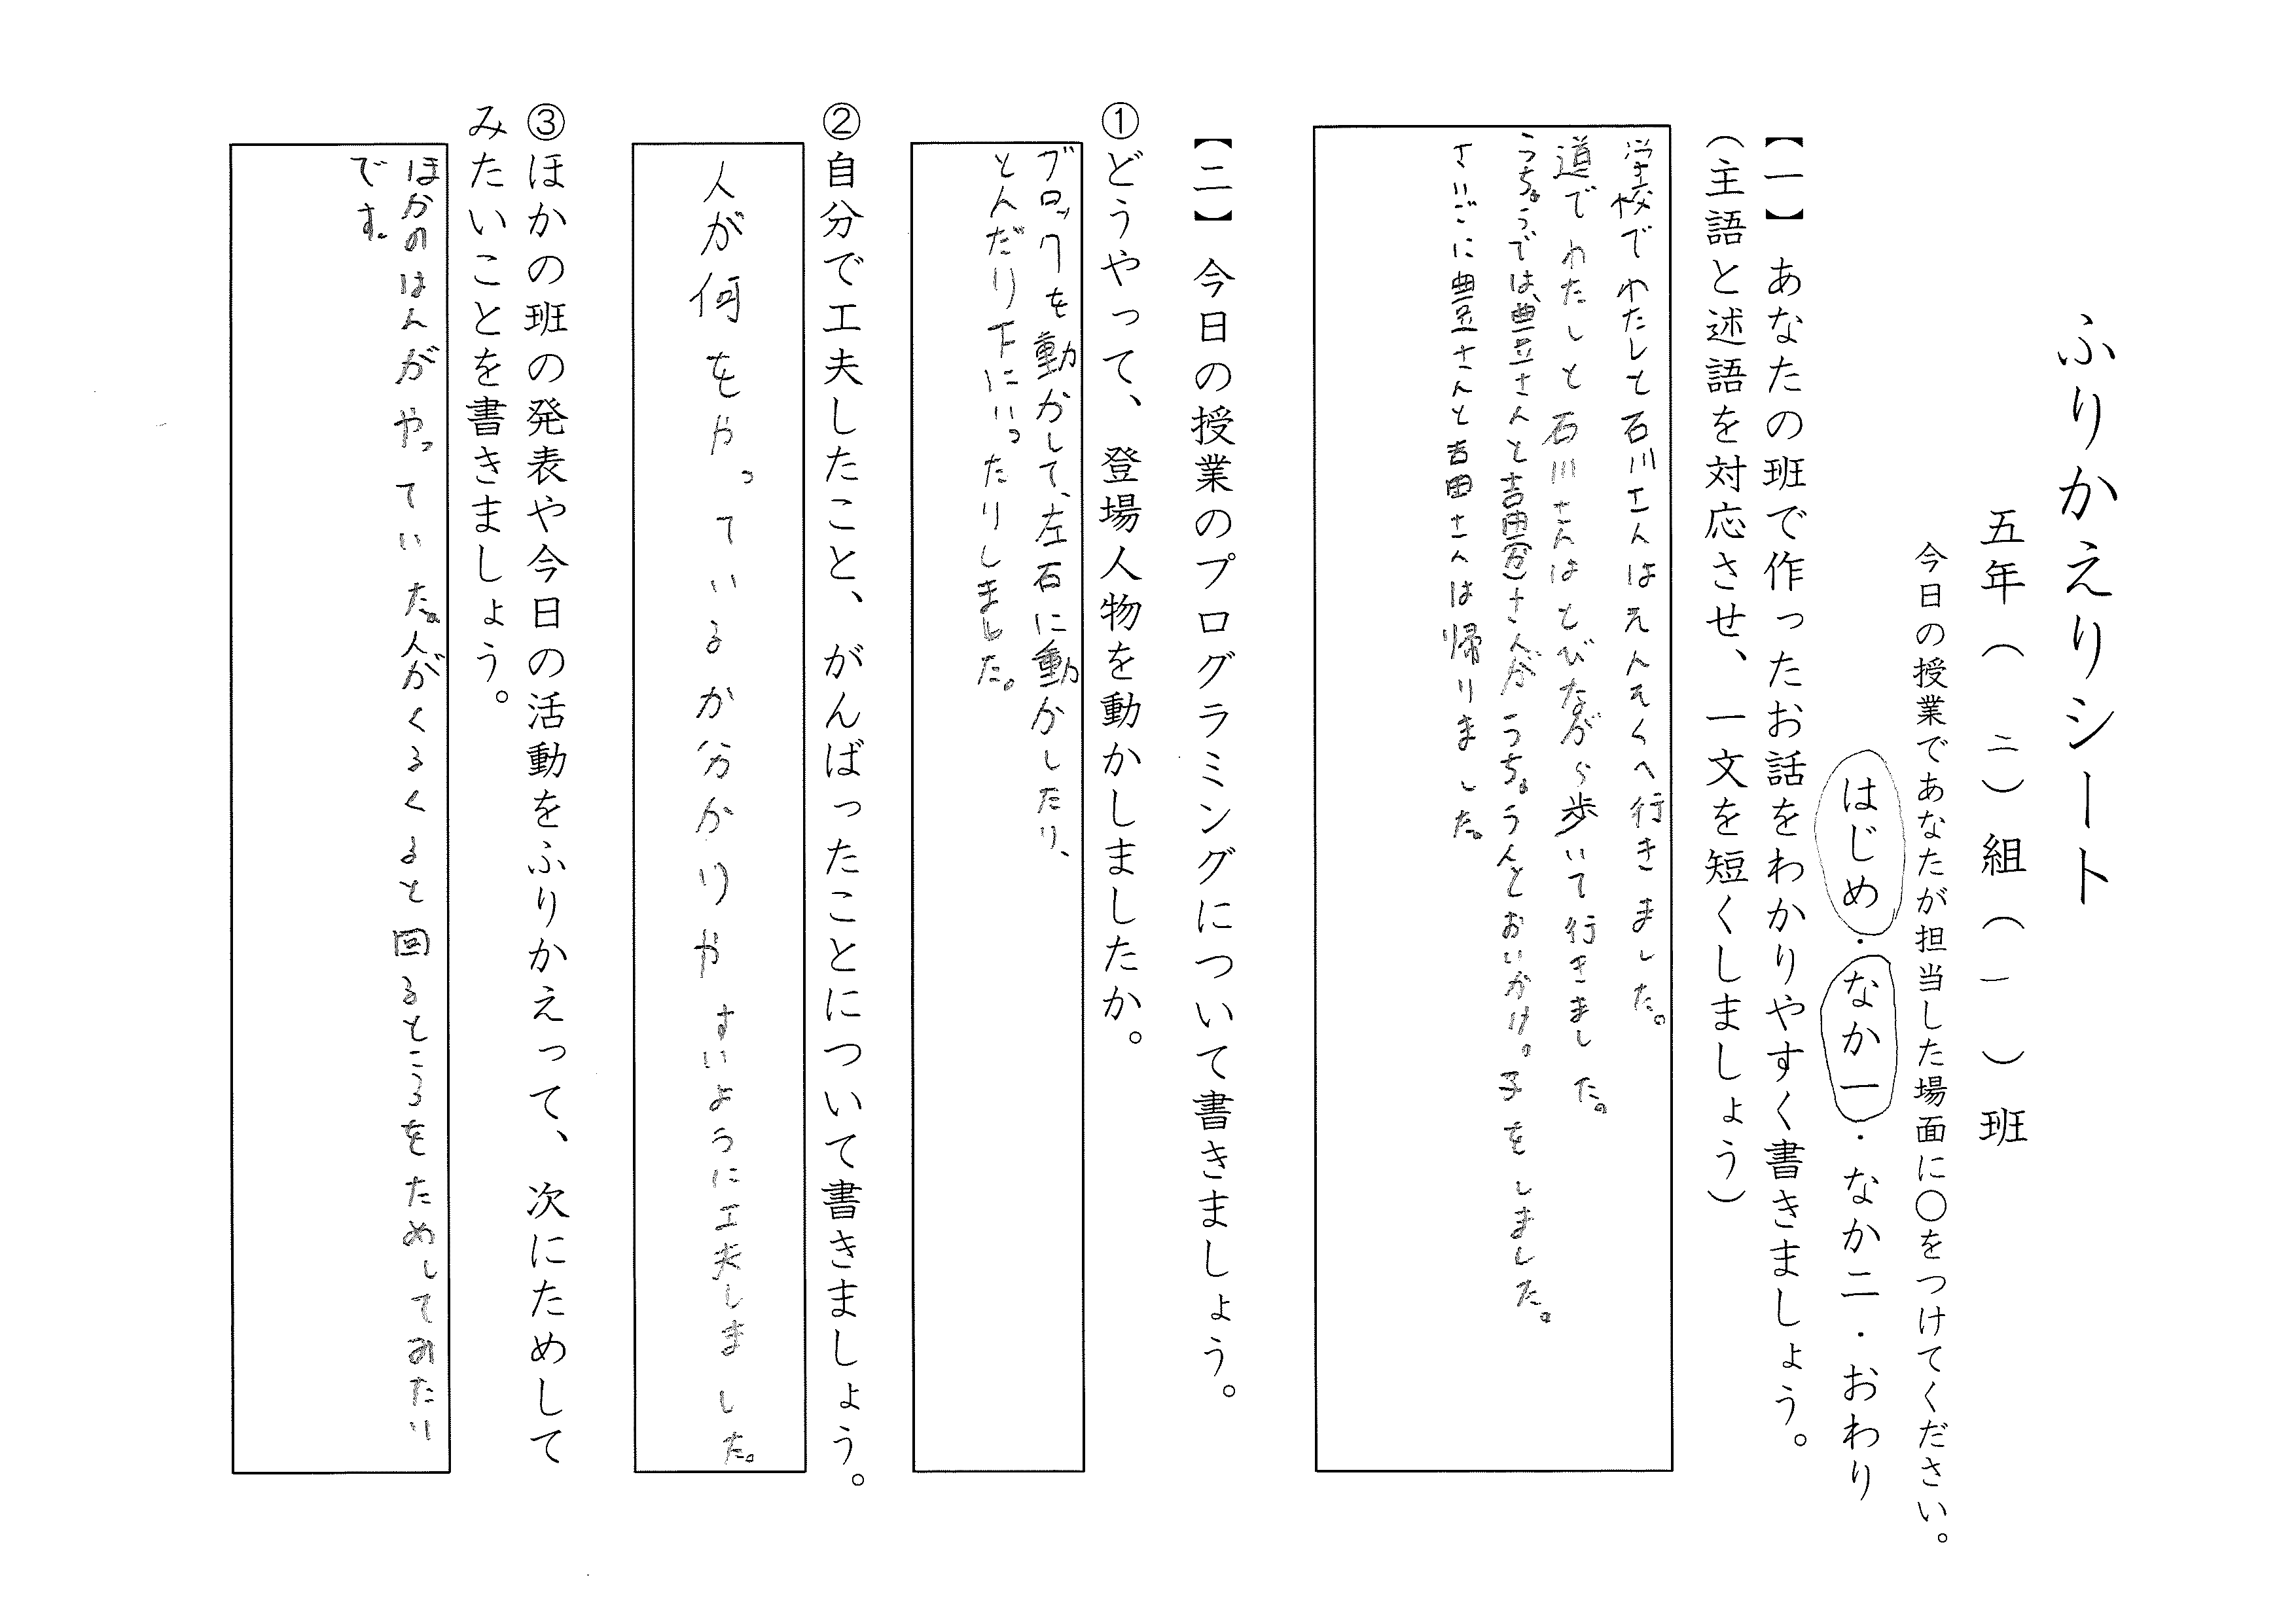 ふりかえりシート
五年（　二）組（　一　）班
今日の授業であなたが担当した場面に〇をつけてください。
はじめ・なか一・なか二・おわり
【一】あなたの班で作ったお話をわかりやすく書きましょう。
（主語と述語を対応させ、一文を短くしましょう）
学校でわたしと石川さんはえんそくへ行きました。
道でわたしと石川さんはとびながら歩いて行きました。
うちゅうでは、豊さんと吉田さんが うちゅうんとおいかけっ子をしました。
さいごに豊さんと吉田さんは帰りました。
【二】今日の授業のプログラミングについて書きましょう。
①どうやって、登場人物を動かしましたか。
ブロックを動かして、左右に動かしたり、
とんだり下にいったりしました。
②自分で工夫したこと、がんばったことについて書きましょう。
人が何をやっているか分かりやすいように工夫しました。
③ほかの班の発表や今日の活動をふりかえって、次にためして
みたいことを書きましょう。
ほかのはんがやっていた。人がくるくると回るところをためしてみたい
です。